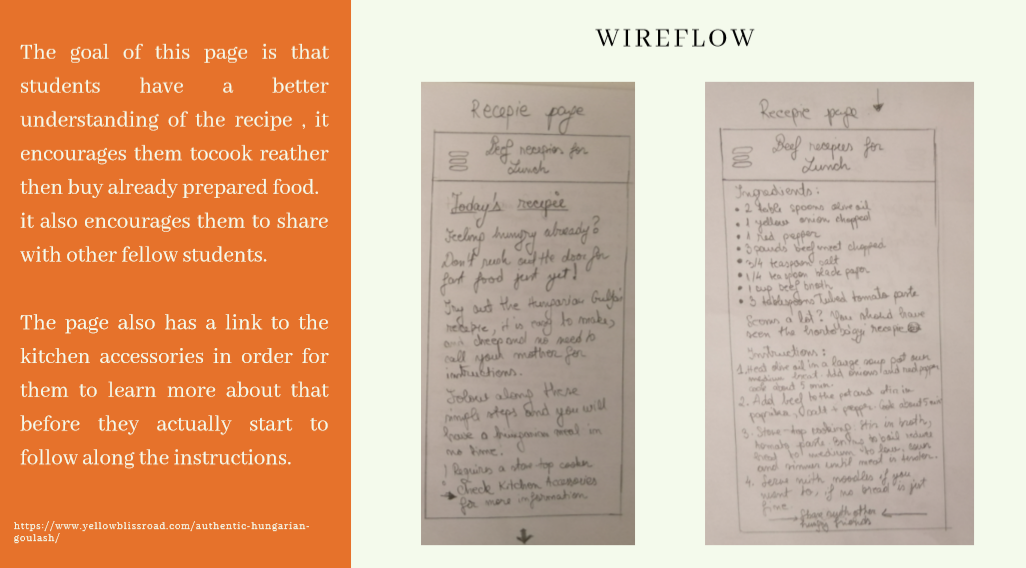 The goal of this page is that
students have a better
understanding of the recipe , it
encourages them tocook reather
then buy already prepared food.
it also encourages them to share
with other fellow students.
The page also has a link to the
kitchen accessories in order for
them to learn more about that
before they actually start to
follow along the instructions.
https://www.yellowblissroad.com/authentic-hungarian-
goulash/
WIREFLOW
Recepie page
Beef recepies for
Lunch
Today's recepie
Feeling hungry already?
Don't rush out the door for
fast food just yet!
Try out the Hungarian
recepie, it is easy to make,
and cheep and no need to
call your mother for
instructions.
Follow along these
simple steps and you will
have a hungarian meal in
no time.
! Requires a stove top cooker
Check Kitchen Accessories
for more information
Recepie page
Beef recepies for
Lunch
Ingredients:
• 2 table spoons olive oil
• 1 yellow onion chopped
• 1 red pepper
• 3 pounds beef meet chopped
• 3/4 teaspoon salt
• 1/4 teaspoon black
• 1 cup beef broth
• 3 tablespoons tomato paste
a lot? You should have
seen the recepie
Instructions:
1. Heat olive oil in a large soup pot over
medium heat. Add onions and red pepper
cook about 5 min.
2. Add beef to the pot and stir in
paprika, salt + pepper. Cook about 5 min
3. Stove-top cooking: Stir in broth,
tomato paste. Bring to boil
heat to medium to low, cover
and simmer until meat is tender.
4. Serve with noodles if you
want to, if no bread is just
fine
Share with other
hungry friends